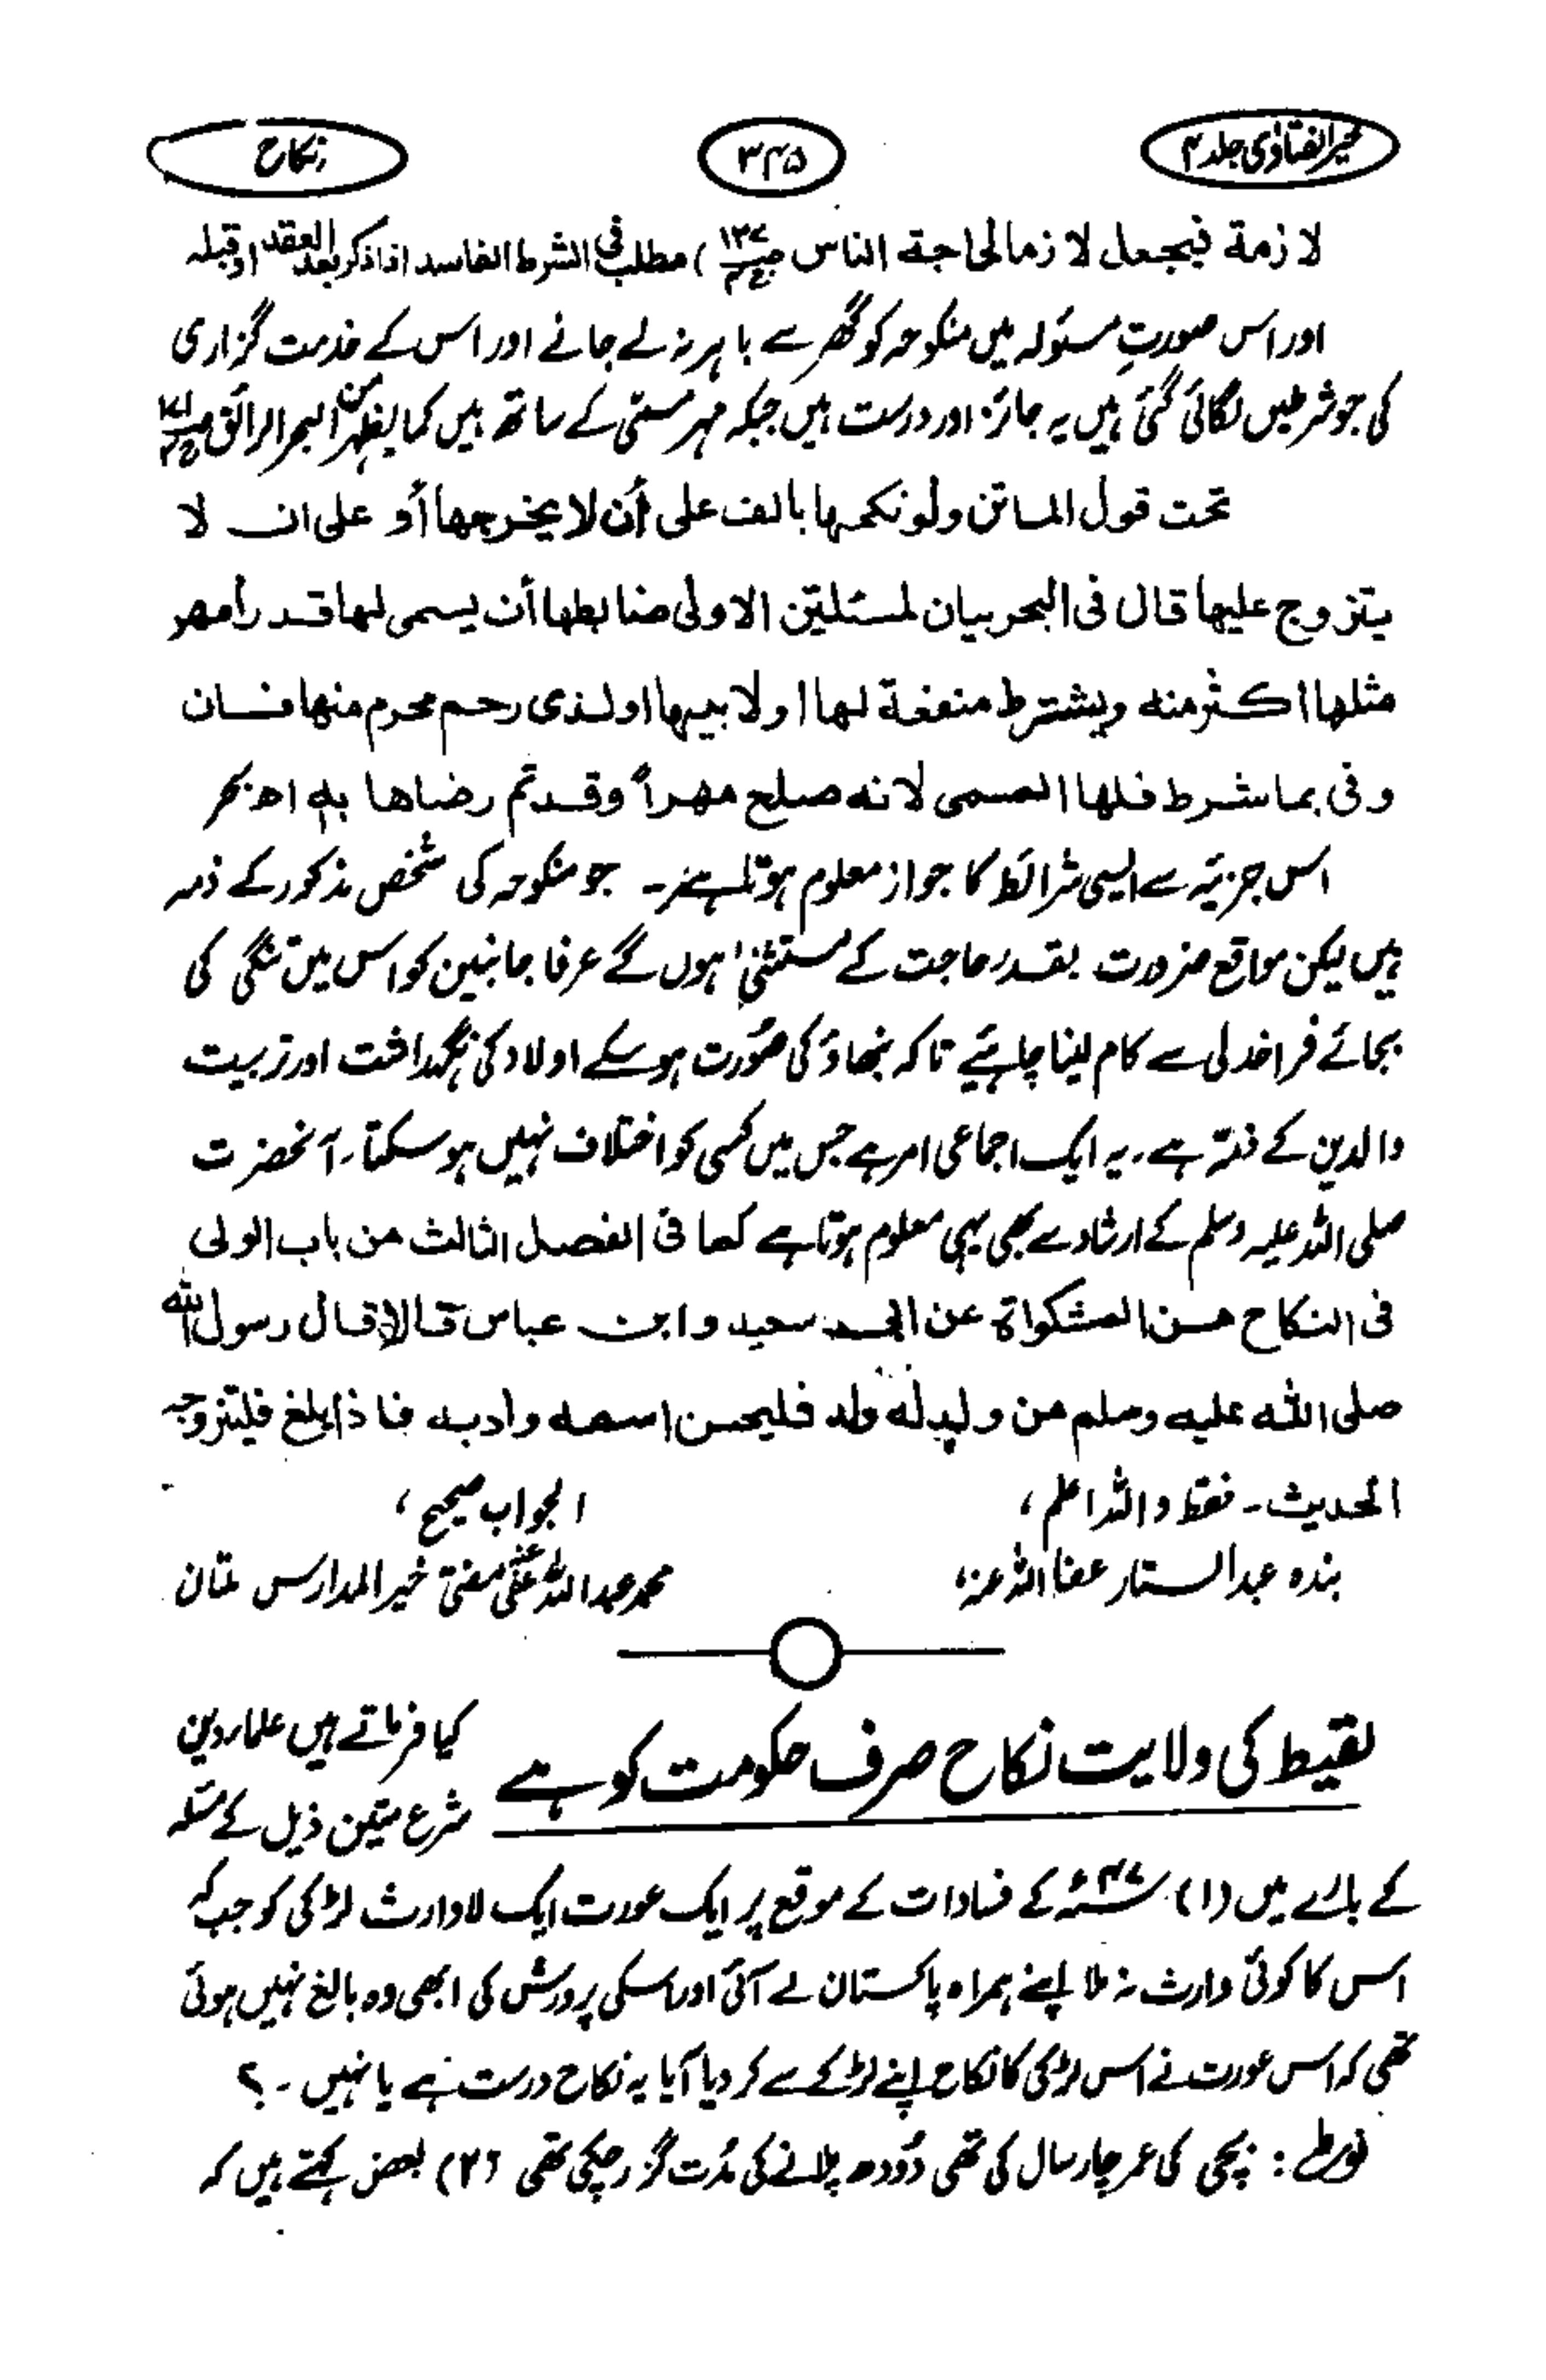 خیر الفتاوٰی جلد ۴
۳۴۵
نکاح
لازمة فیجعل لازما لحاجة الناس (مطلب فی الشرط الفاسد اذا ذکر بعد العقد او قبله
اور اس صورتِ مسئولہ میں منکوحہ کو گھر سے باہر نہ لے جانے اور اس کے خدمت گزاری
کی جو شرطیں لگائی گئی ہیں یہ جائز اور درست ہیں جبکہ مہر مسمّی کے ساتھ ہیں کما یظہر من البحر الرائق
تحت قول الماتن ولو نکحها بالف علی أن لا یخرجها أو علی ان لا
یتزوج علیها قال فی البحر بیان لمسئلتین الاولی ضابطها أن یسمی لها قدراً مهر
مثلها اکثر منه ویشترط منفعة لها او لابیها او لذی رحم محرم منها فان
وفی بما شرط فلها المسمی لانه صلح مهراً وقد تم رضاها به اھ بحر
اس جزیّہ سے ایسی شرائط کا جواز معلوم ہوتا ہے۔ جو منکوحہ کی شخص مذکور کے ذمہ
ہیں لیکن مواقع ضرورت بقدر حاجت کے مستثنیٰ ہوں گے عرفا جانبین کو اس میں تنگی کی
بجائے فراخدلی سے کام لینا چاہئیے تاکہ نبھاؤ کی صورت ہو سکے اولاد کی نگہداشت اور تربیت
والدین کے ذمّہ ہے۔ یہ ایک اجماعی امر ہے جس میں کسی کو اختلاف نہیں ہو سکتا۔ آنحضرت
صلی اللہ علیہ وسلم کے ارشاد سے بھی یہی معلوم ہوتا ہے کما فی الفصل الثالث من باب الولی
فی النکاح من المشکواة عن ابی سعید وابن عباس قالا قال رسول الله
صلی الله علیه وسلم من ولد له ولد فلیحسن اسمه وادبه فاذا بلغ فلیتزوجه
الحدیث۔ فقط واللہ اعلم،
الجواب صحیح،
بندہ عبدالستار عفا اللہ عنہ،
محمد عبداللہ عفی عنہ مفتی خیر المدارس ملتان
لقیط کی ولایت نکاح صرف حکومت کو ہے
کیا فرماتے ہیں علماء دین
شرع متین ذیل کے مسئلہ
کے بارے میں (۱) ۴۷ء کے فسادات کے موقع پر ایک عورت ایک لاوارث لڑکی کو جب کہ
اس کا کوئی وارث نہ ملا اپنے ہمراہ پاکستان لے آئی اور اسکی پرورش کی ابھی وہ بالغ نہیں ہوئی
تھی کہ اس عورت نے اس لڑکی کا نکاح اپنے لڑکے سے کر دیا آیا یہ نکاح درست ہے یا نہیں۔؟
نوٹ: بچی کی عمر چار سال کی تھی دودھ پلانے کی مدّت گزر چکی تھی (۲) بعض کہتے ہیں کہ